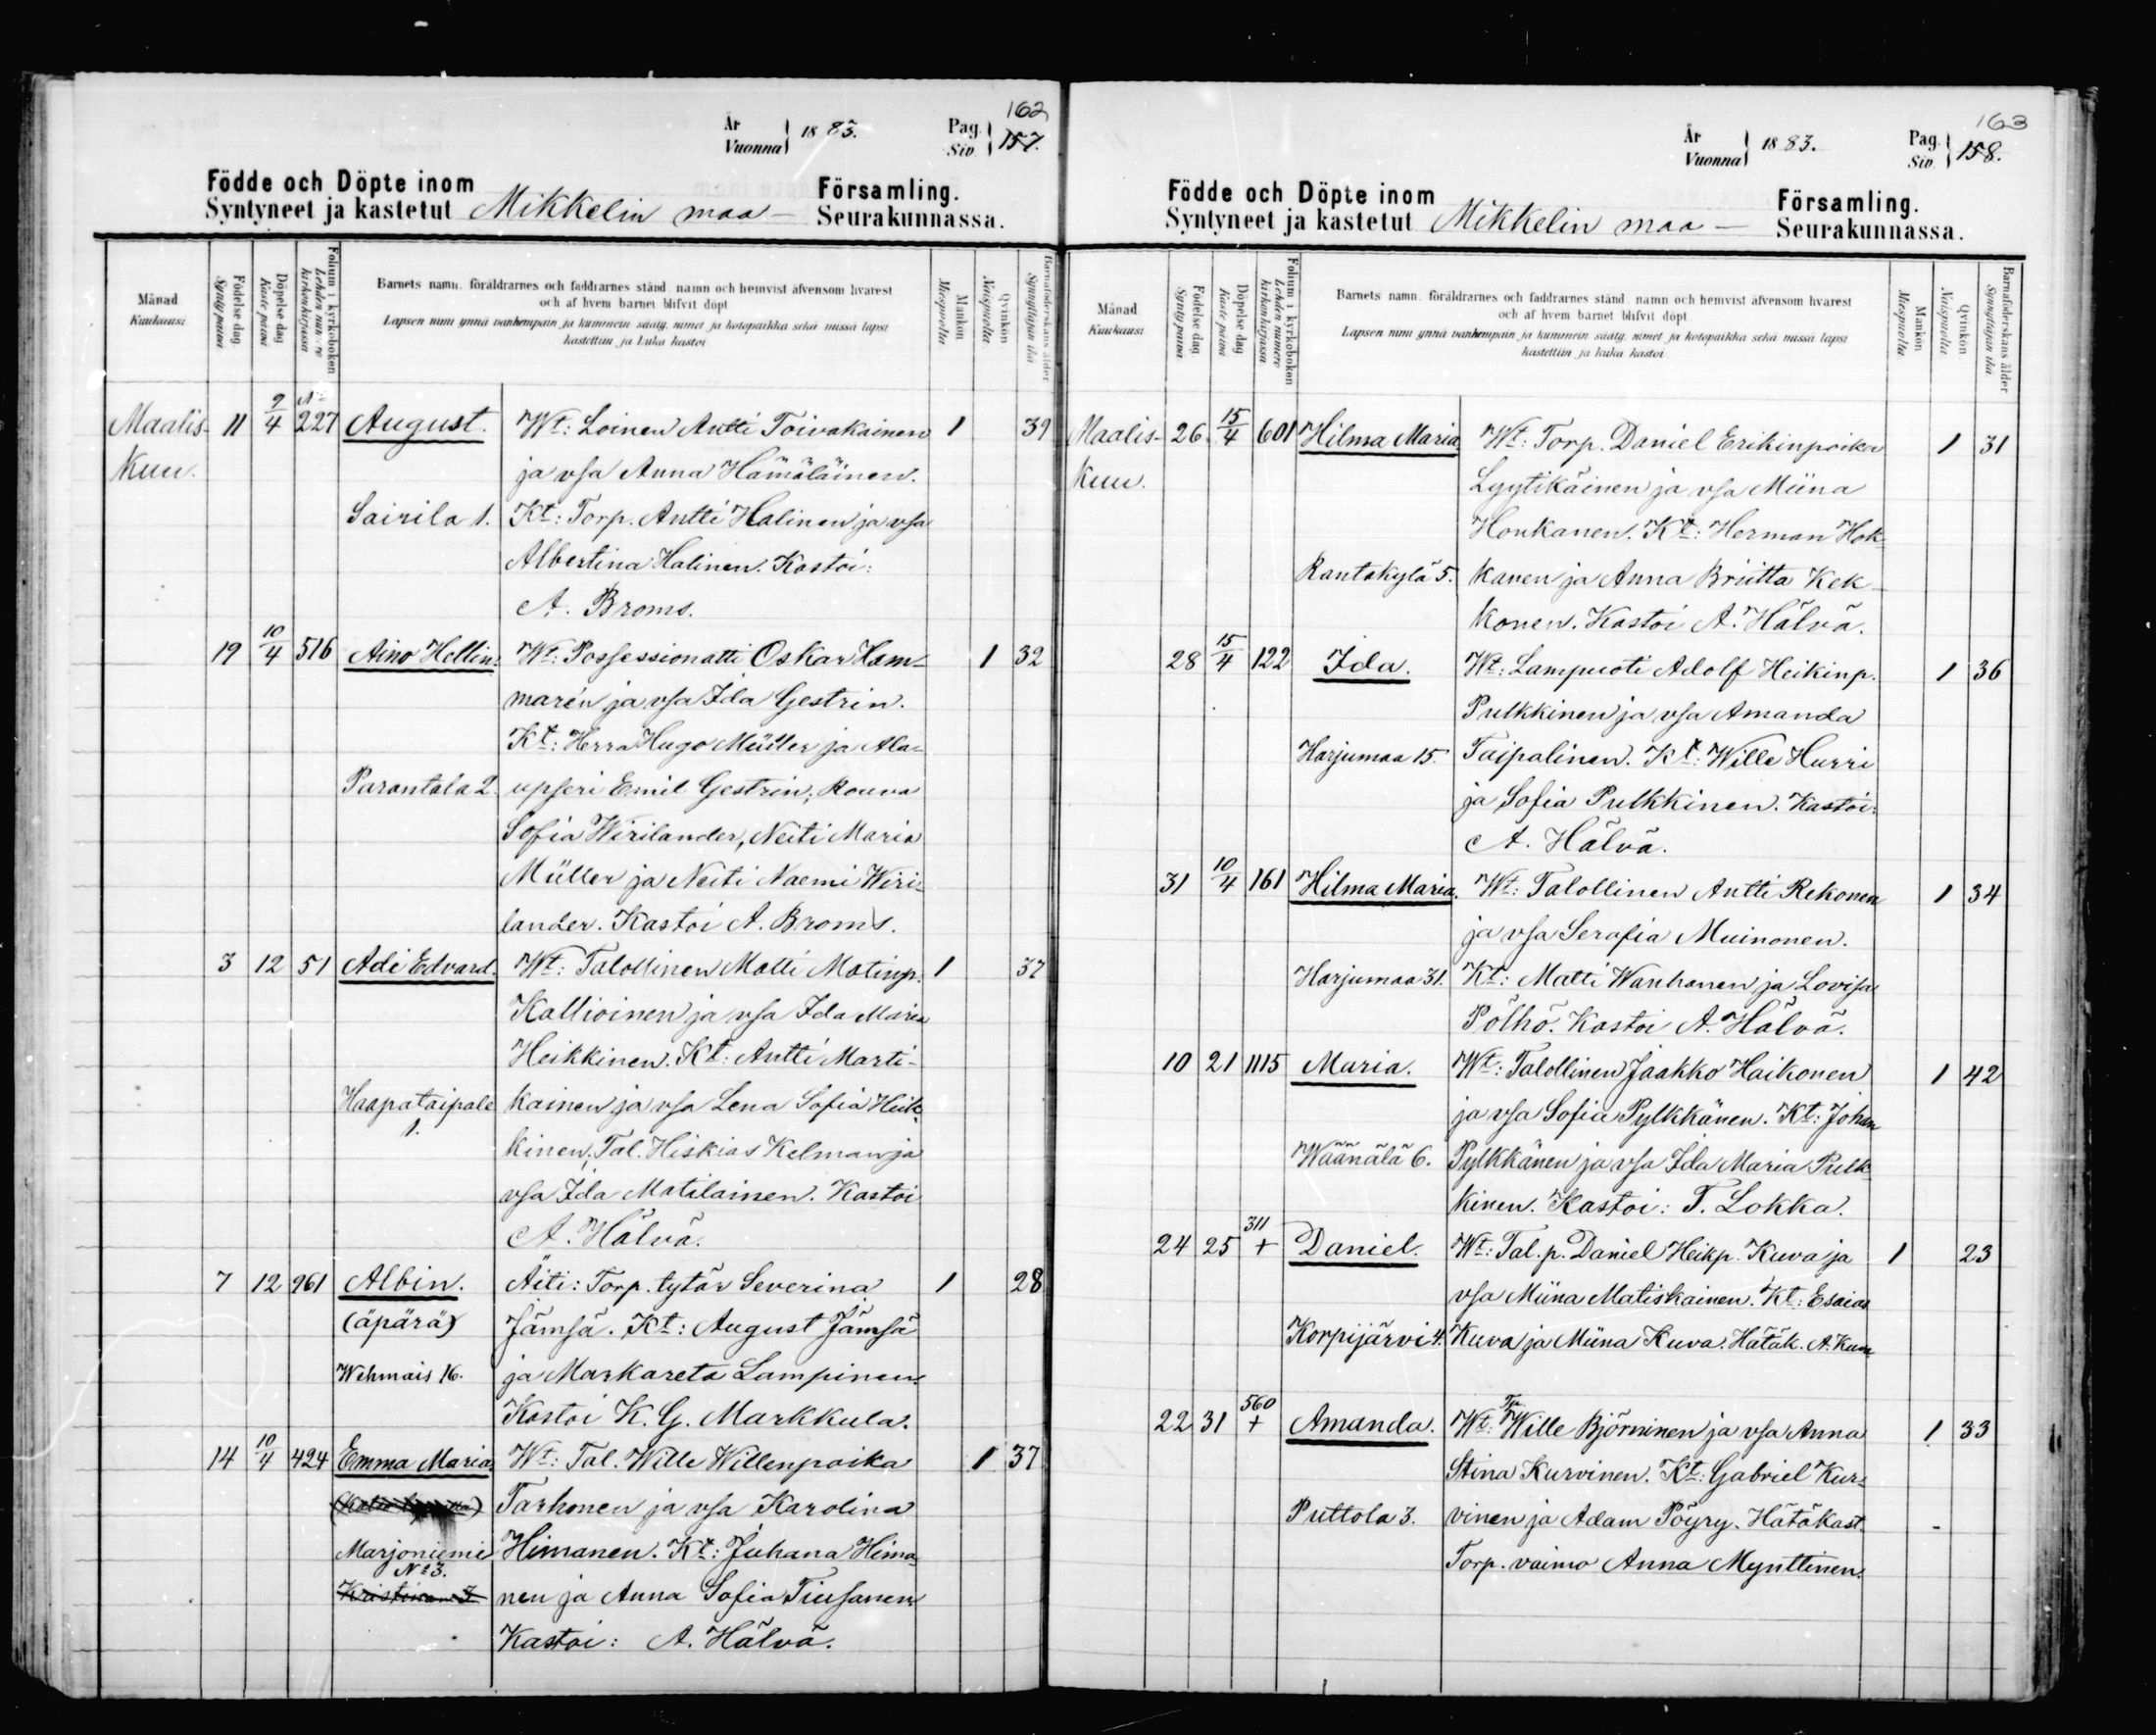 162
År
Vuonna } 1883.
Pag.
Siv. } 157.
Födde och Döpte inom
Syntyneet ja kastetut Mikkelin maa- Församling.
Seurakunnassa.
Månad
Kuukausi
Födelse dag
Synty paiva
Döpelse dag
Kaste paiva
Folium i kyrkoboken
Lehden numero
kirkonkirjassa
Barnets namn, föräldrarnes och faddrarnes stånd, namn och hemvist äfvensom hvarest
och af hvem barnet blifvit döpt
Lapsen nimi ynnä vanhempain ja kummein sääty, nimet ja kotopaikka sekä missä lapsi
kastettiin ja kuka kastoi
Mankön
Miespuolta
Qvinkön
Naispuolta
Barnaföderskans ålder
Synnyttäjän ikä
Maalis- 11 9/4 N:o 227 August. Wt: Loinen Antti Toivakainen 1 39
kuu. ja vsa Anna Hämäläinen.
Sairila 1. Kt: Torp. Antti Halinen ja vsa
Albertina Halinen. Kastoi:
A. Broms.
19 10/4 516 Aino Hellin. Wt: Possessionatti Oskar Ham- 1 32
marén ja vsa Ida Gestrin.
Kt: Herra Hugo Müller ja Ala-
Parantala 2. upseri Emil Gestrin, Rouva
Sofia Wirilander, Neiti Maria
Müller ja Neiti Naemi Wiri-
lander. Kastoi A. Broms.
3 12 51 Adi Edvard. Wt: Talollinen Matti Matinp. 1 37
Kallioinen ja vsa Ida Maria
Heikkinen. Kt: Antti Marti-
Haapataipale kainen ja vsa Lena Sofia Heik-
1. kinen, Tal. Hiskias Kelman ja
vsa Ida Matilainen. Kastoi
A. Hälvä.
7 12 961 Albin. Äiti: Torp. tytär Severina 1 28
(äpärä) Jämsä. Kt: August Jämsä
Wehmais 16. ja Markareta Lampinen.
Kastoi K. G. Markkula.
14 10/4 424 Emma Maria. Wt: Tal. Wille Willenpoika 1 37
Tarhonen ja vsa Karolina
Marjoniemi Himanen. Kt: Juhana Hima-
No 3.
nen ja Anna Sofia Tiusanen
Kastoi: A. Hälvä.
163
År
Vuonna } 1883.
Pag.
Siv. } 158.
Födde och Döpte inom
Syntyneet ja kastetut Mikkelin maa- Församling.
Seurakunnassa.
Månad
Kuukausi
Födelse dag
Synty paiva
Döpelse dag
Kaste paiva
Folium i kyrkoboken
Lehden numero
kirkonkirjassa
Barnets namn, föräldrarnes och faddrarnes stånd, namn och hemvist äfvensom hvarest
och af hvem barnet blifvit döpt
Lapsen nimi ynnä vanhempain ja kummein sääty, nimet ja kotopaikka sekä missä lapsi
kastettiin ja kuka kastoi.
Mankön
Miespuolta
Qvinkön
Naispuolta
Barnaföderskans ålder
Synnyttäjän ikä
Maalis- 26 15/4 601 Hilma Maria. Wt: Torp. Daniel Erikinpoika 1 31
kuu. Lyytikäinen ja vsa Miina
Honkanen. Kt: Herman Hok-
Rantakylä 5. kanen ja Anna Briitta Kek-
konen. Kastoi A. Hälvä.
28 15/4 122 Ida. Wt: Lampuoti Adolf Heikinp. 1 36
Pulkkinen ja vsa Amanda
Harjumaa 15. Taipalinen. Kt: Wille Hurri
ja Sofia Pulkkinen. Kastoi:
A. Hälvä.
31 10/4 161 Hilma Maria. Wt: Talollinen Antti Rekonen 1 34
ja vsa Serafia Muinonen.
Harjumaa 31. Kt: Matti Wanhanen ja Lovisa
Pölhö. Kastoi A. Hälvä.
10 21 1115 Maria. Wt: Talollinen Jaakko Haikonen 1 42
ja vsa Sofia Pylkkänen. Kt: Johan
Wäänälä 6. Pylkkänen ja vsa Ida Maria Pulk-
kinen. Kastoi: T. Lokka.
24 25 311 + Daniel. Wt: Tal. p. Daniel Heikp. Kuva ja 1 23
vsa Miina Matiskainen. Kt: Esaias
Korpijärvi 4. Kuva ja Miina Kuva. Hätäk. A. Kuva
22 31 560 + Amanda. Wt: Wille Björninen ja vsa Anna 1 33
Stina Kurvinen. Kt: Gabriel Kur-
Puttola 3. vinen ja Adam Pöyry. Hätäkast.
Torp. vaimo Anna Mynttinen.